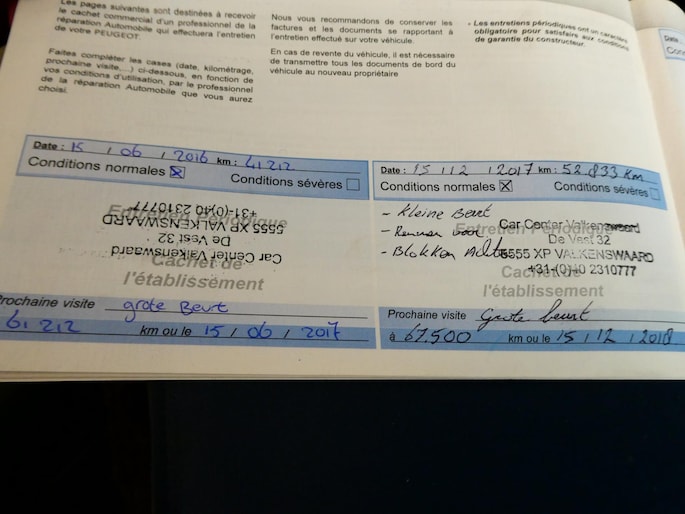 Les pages suivantes sont destinées à recevoir
le cachet commercial d'un professionnel de la
réparation Automobile qui effectuera l'entretien
de votre PEUGEOT.
Faites compléter les cases (date, kilométrage,
prochaine visite,...) ci-dessous, en fonction de
vos conditions d'utilisation, par le professionnel
de la réparation Automobile que vous aurez
choisi.
Nous vous recommandons de conserver les
factures et les documents se rapportant à
l'entretien effectué sur votre véhicule.
En cas de revente du véhicule, il est nécessaire
de transmettre tous les documents de bord du
véhicule au nouveau propriétaire
- Les entretiens périodiques ont un caractère
obligatoire pour satisfaire aux conditions
de garantie du constructeur.
Date : 15 / 06 / 2016 km : 41212
Conditions normales
Conditions sévères
Entretien Périodique
Car Center Valkenswaard
De Vest 32
5555 XP VALKENSWAARD
+31-(0)40 2310777
Cachet de
l'établissement
Prochaine visite grote Beurt
61212 km ou le 15 / 06 / 2017
Date : 15 / 12 / 2017 km : 52.833 km
Conditions normales
Conditions sévères
- Kleine Beurt
- Remmen
- Blokken
Entretien Périodique
Car Center Valkenswaard
De Vest 32
5555 XP VALKENSWAARD
+31-(0)40 2310777
Cachet de
l'établissement
Prochaine visite Grote beurt
à 67.500 km ou le 15 / 12 / 2018
Date